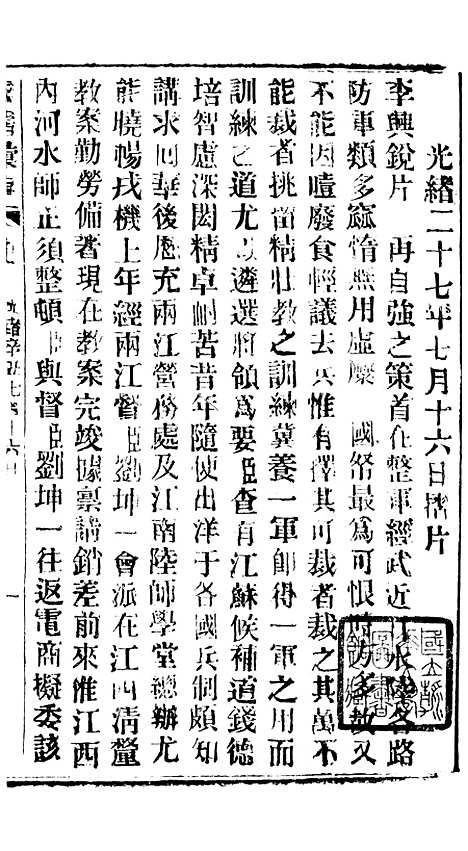 光緒二十七年七月十六日摺片
李興銳片 再自強之策首在整軍經武近 水陸各路
防軍類多窳惰無用虛糜 國帑最爲可恨時方多故又
不能因噎廢食輕議去兵惟有擇其可裁者裁之其萬不
能裁者挑留精壯教之訓練冀養一軍卽得一軍之用而
訓練之道尤以遴選將領爲要臣查有江蘇候補道錢德
培智慮深閎精卓耐苦昔年隨使出洋于各國兵制頗知
講求回華後歷充兩江營務處及江南陸師學堂總辦尤
能曉暢戎機上年經兩江督臣劉坤一會派在江西清釐
教案勤勞備著現在教案完竣據稟請銷差前來惟江西
內河水師正須整頓臣與督臣劉坤一往返電商擬委該
光緒辛丑七月十六日
一